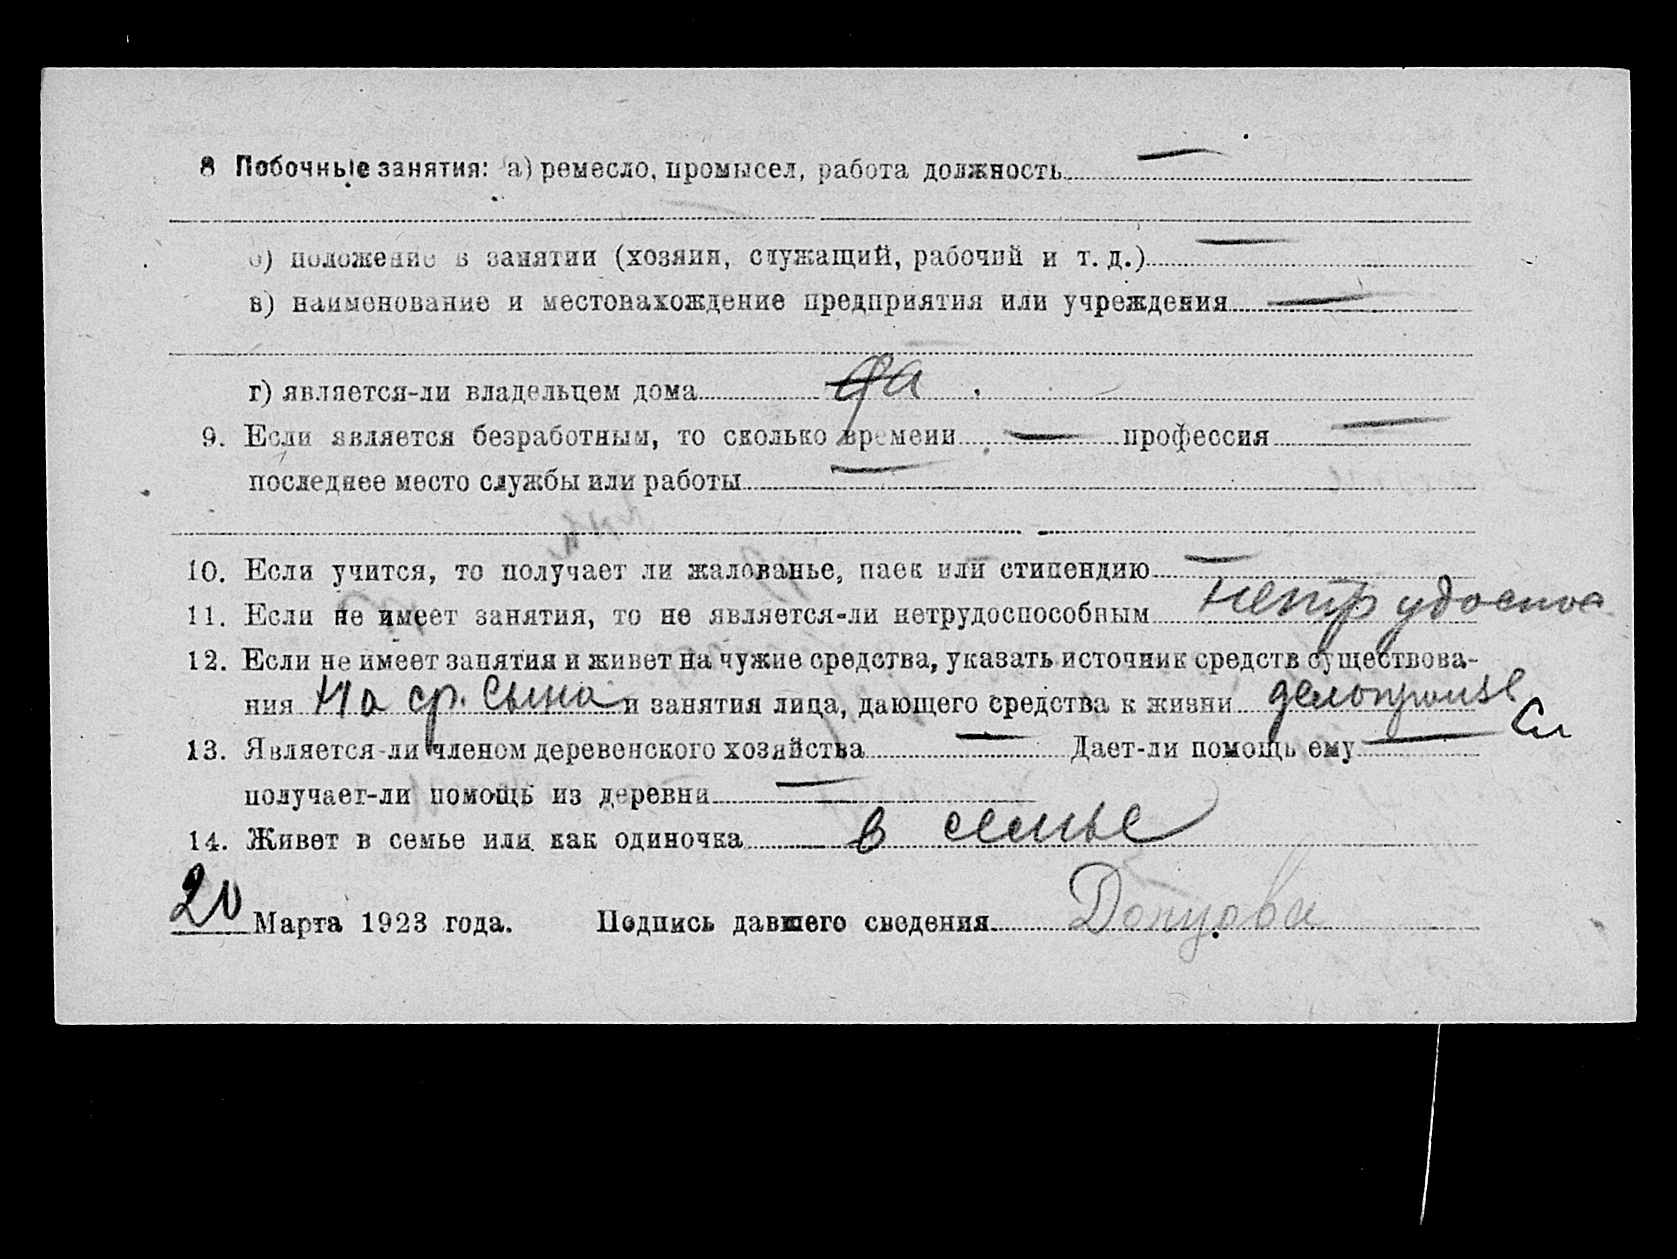 8 Побочные занятия: а) ремесло, промысел, работа должность —
б) положение в занятии (хозяин, служащий, рабочий и т. д.) —
в) наименование и местонахождение предприятия или учреждения —
г) является-ли владельцем дома да
9. Если является безработным, то сколько времени — профессия —
последнее место службы или работы —
10. Если учится, то получает ли жалованье, паек или стипендию —
11. Если не имеет занятия, то не является-ли нетрудоспособным нетрудоспос
12. Если не имеет занятия и живет на чужие средства, указать источник средств существова-
ния На ср. сына и занятия лица, дающего средства к жизни делопроизв
Сл
13. Является-ли членом деревенского хозяйства — Дает-ли помощь ему —
получает-ли помощь из деревни —
14. Живет в семье или как одиночка в семье
20 Марта 1923 года. Подпись давшего сведения